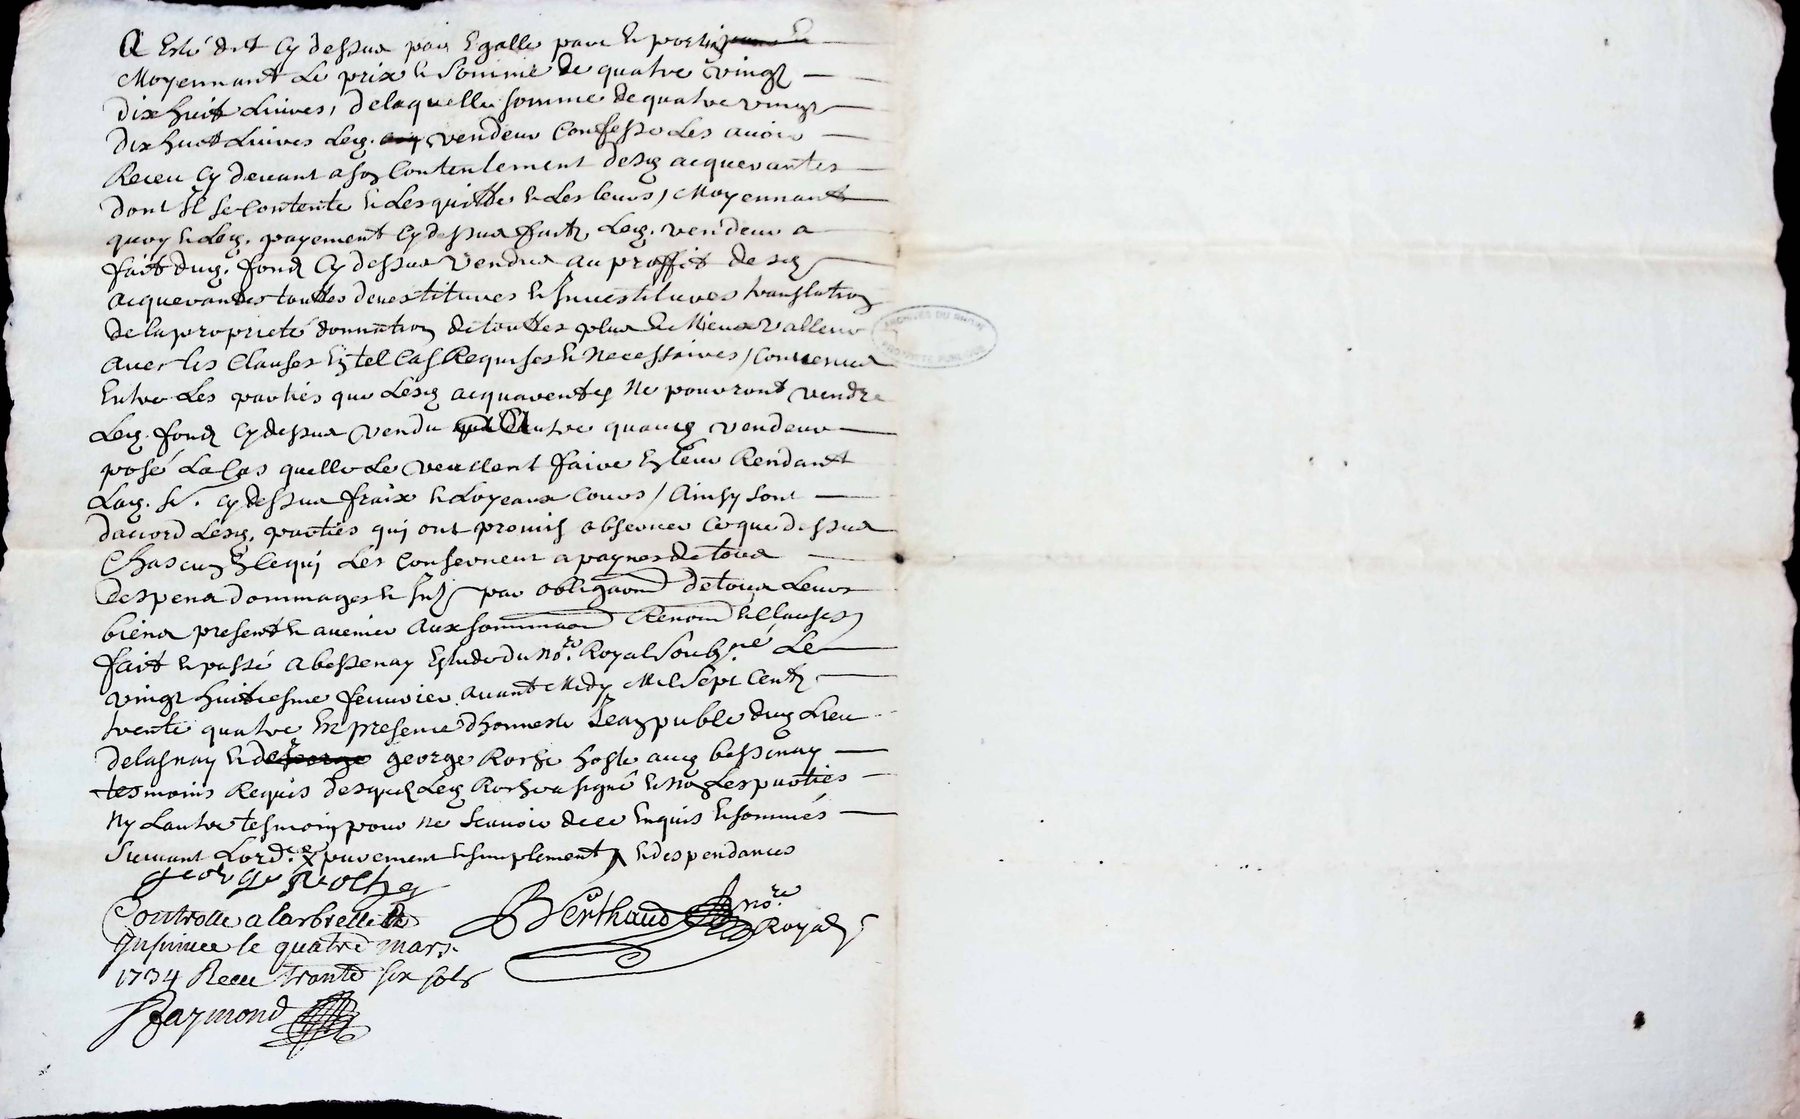 A Esté dit Cy dessus par Egalle part & portion
Moyennant Le prix & Somme de quatre vingt
dix huit Livres, de laquelle somme de quatre vingt
dix huit Livres Led. vendeur Confesse Les avoir
Receu Cy devant a son Contentement desd acquerantes
dont Il se Contente & Les quitte & Les leurs / Moyennant
quoy & Led. payement Cy dessus fait Led. vendeur a
fait dud. fond Cy dessus vendus au proffit desd
acquerantes touttes devestitures & Investitures translation
de la proprieté donnation de touttes plus & Mieux valleur
avec les Clauses En tel Cas Requises & Necessaires / Convenus
Entre Les parties que Lesd acquarentes Ne pourront vendre
Led. fond Cy dessus vendu a autre quaud vendeur
posé Le Cas quelle Le veullent faire En Leur Rendant
Lad. so. cy dessus fraix & Loyeaux Cours / Ainsy sont
daccord Lesd. parties qui ont promis observer Ce que dessus
Chascun En Ce qui Les Conservent a paynes de tous
despens dommages & Int par obligaon de tous Leurs
biens presents & avenir aux sommaon Renon & Clauses
fait & passé a bessenay Estude du No.re Royal Soubz.né Le
vingt huitiesme fevvrier avant Midy Mil Sept Cents
trente quatre En presence dhonneste Jean puble dud Lieu
de Lasnay & de george Roche hoste aud bessenay
tesmoins Requis desquels Led Roche a signé & Non Les parties
Ny Lautre tesmoin pour Ne scavoir de ce Enquis & sommés
Suivant Lord.ce x purement & simplement & despendances
george Roche
Controlle a larbrelle &
Insinuee le quatre mars
1734 Receu trante six sols
Raymond
Berthaud no.re Royal
ARCHIVES DU RHONE
PROPRIÉTÉ PUBLIQUE